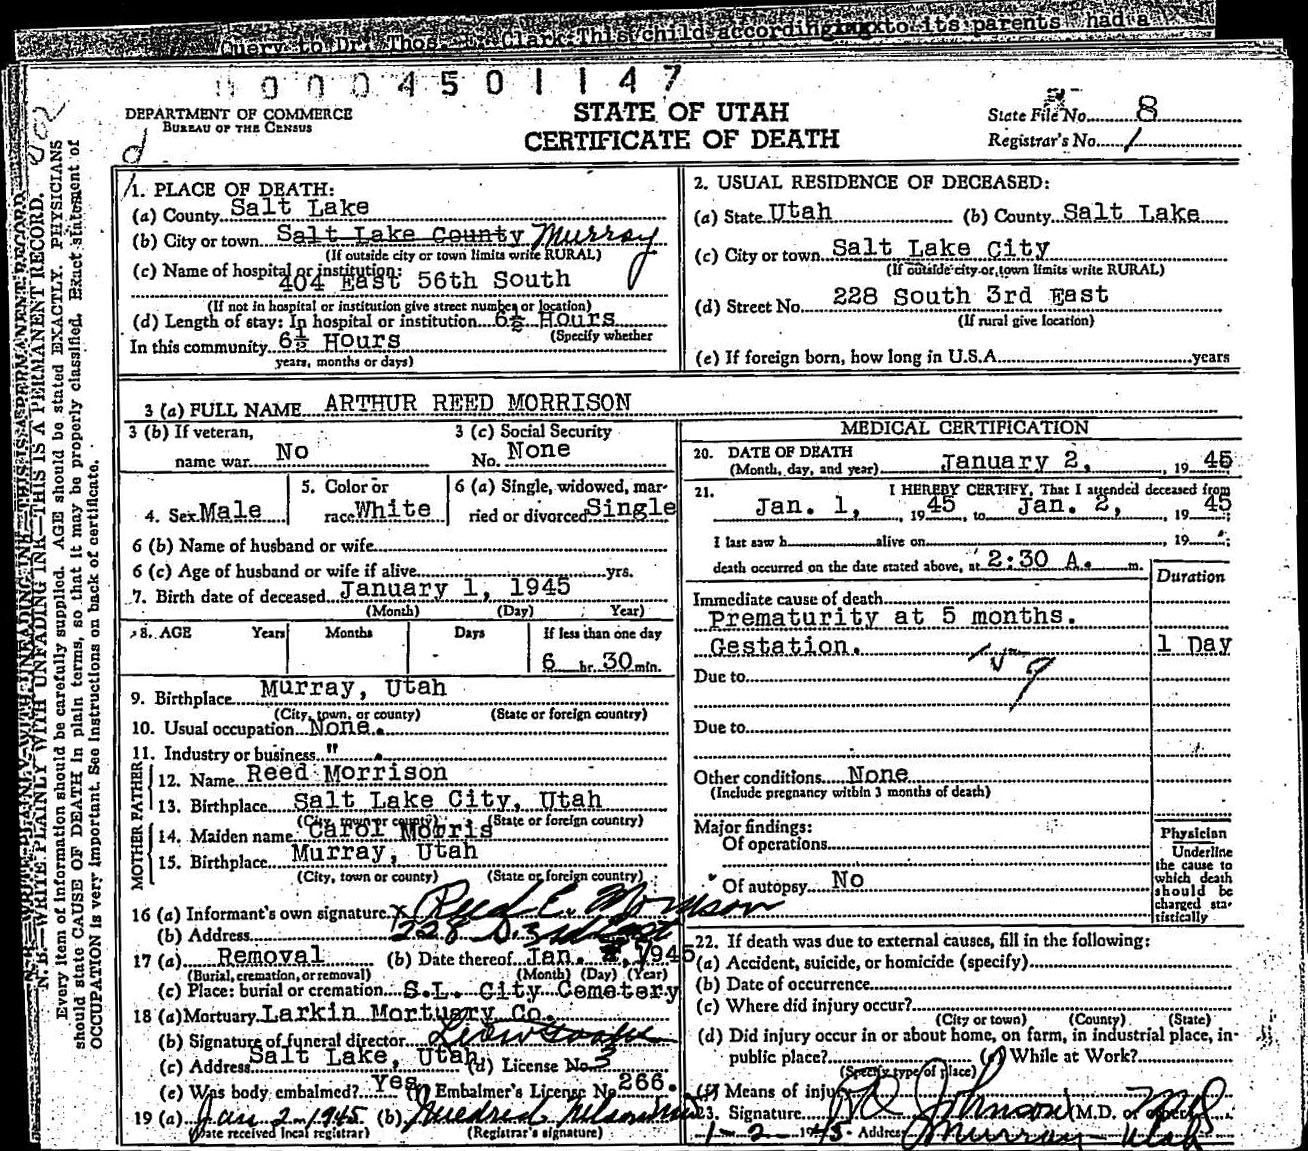 Query to Dr. Thos. Clark This child according to its parents had a
0000450 1147
DEPARTMENT OF COMMERCE
BUREAU OF THE CENSUS
STATE OF UTAH
CERTIFICATE OF DEATH
State File No. 8
Registrar's No. 1
N. B.—WRITE PLAINLY WITH UNFADING INK—THIS IS A PERMANENT RECORD.
Every item of information should be carefully supplied. AGE should be stated EXACTLY. PHYSICIANS
should state CAUSE OF DEATH in plain terms, so that it may be properly classified. Exact statement of
OCCUPATION is very important. See instructions on back of certificate.
1. PLACE OF DEATH:
(a) County Salt Lake
(b) City or town Salt Lake County Murray
(If outside city or town limits write RURAL)
(c) Name of hospital or institution:
404 East 56th South
(If not in hospital or institution give street number or location)
(d) Length of stay: In hospital or institution 6½ Hours
(Specify whether
In this community 6½ Hours
years, months or days)
2. USUAL RESIDENCE OF DECEASED:
(a) State Utah (b) County Salt Lake
(c) City or town Salt Lake City
(If outside city or town limits write RURAL)
(d) Street No. 228 South 3rd East
(If rural give location)
(e) If foreign born, how long in U.S.A. years
3 (a) FULL NAME ARTHUR REED MORRISON
3 (b) If veteran,
name war No
3 (c) Social Security
No. None
4. Sex Male
5. Color or
race White
6 (a) Single, widowed, mar-
ried or divorced Single
6 (b) Name of husband or wife
6 (c) Age of husband or wife if alive yrs.
7. Birth date of deceased January 1, 1945
(Month) (Day) Year)
8. AGE Years Months Days If less than one day
6 hr. 30 min.
9. Birthplace Murray, Utah
(City, town, or county) (State or foreign country)
10. Usual occupation None.
11. Industry or business "
FATHER
12. Name Reed Morrison
13. Birthplace Salt Lake City, Utah
(City, town or county) (State or foreign country)
MOTHER
14. Maiden name Carol Morris
15. Birthplace Murray, Utah
(City, town or county) (State or foreign country)
16 (a) Informant's own signature X Reed E. Morrison
(b) Address 228 So. 3rd East
17 (a) Removal (b) Date thereof Jan. 1945
(Burial, cremation, or removal) (Month) (Day) (Year)
(c) Place: burial or cremation S.L. City Cemetery
18 (a) Mortuary Larkin Mortuary Co.
(b) Signature of funeral director
(c) Address Salt Lake, Utah (d) License No. 3
(e) Was body embalmed? Yes (f) Embalmer's License No. 266.
19 (a) Jan 2-1945 (b)
(Date received local registrar) (Registrar's signature)
MEDICAL CERTIFICATION
20. DATE OF DEATH
(Month, day, and year) January 2, , 19 45
21. I HEREBY CERTIFY, That I attended deceased from
Jan. 1, , 19 45, to Jan. 2, , 19 45;
I last saw h alive on , 19 ;
death occurred on the date stated above, at 2:30 A. m.
Duration
Immediate cause of death
Prematurity at 5 months.
Gestation. 1 Day
159
Due to
Due to
Other conditions None
(Include pregnancy within 3 months of death)
Major findings:
Of operations
Of autopsy No
Physician
Underline
the cause to
which death
should be
charged sta-
tistically
22. If death was due to external causes, fill in the following:
(a) Accident, suicide, or homicide (specify)
(b) Date of occurrence
(c) Where did injury occur?
(City or town) (County) (State)
(d) Did injury occur in or about home, on farm, in industrial place, in
public place? (e) While at Work?
(Specify type of place)
(f) Means of injury
23. Signature Johnson (M.D. or other) MD
1-2-1945 Address Murray Utah